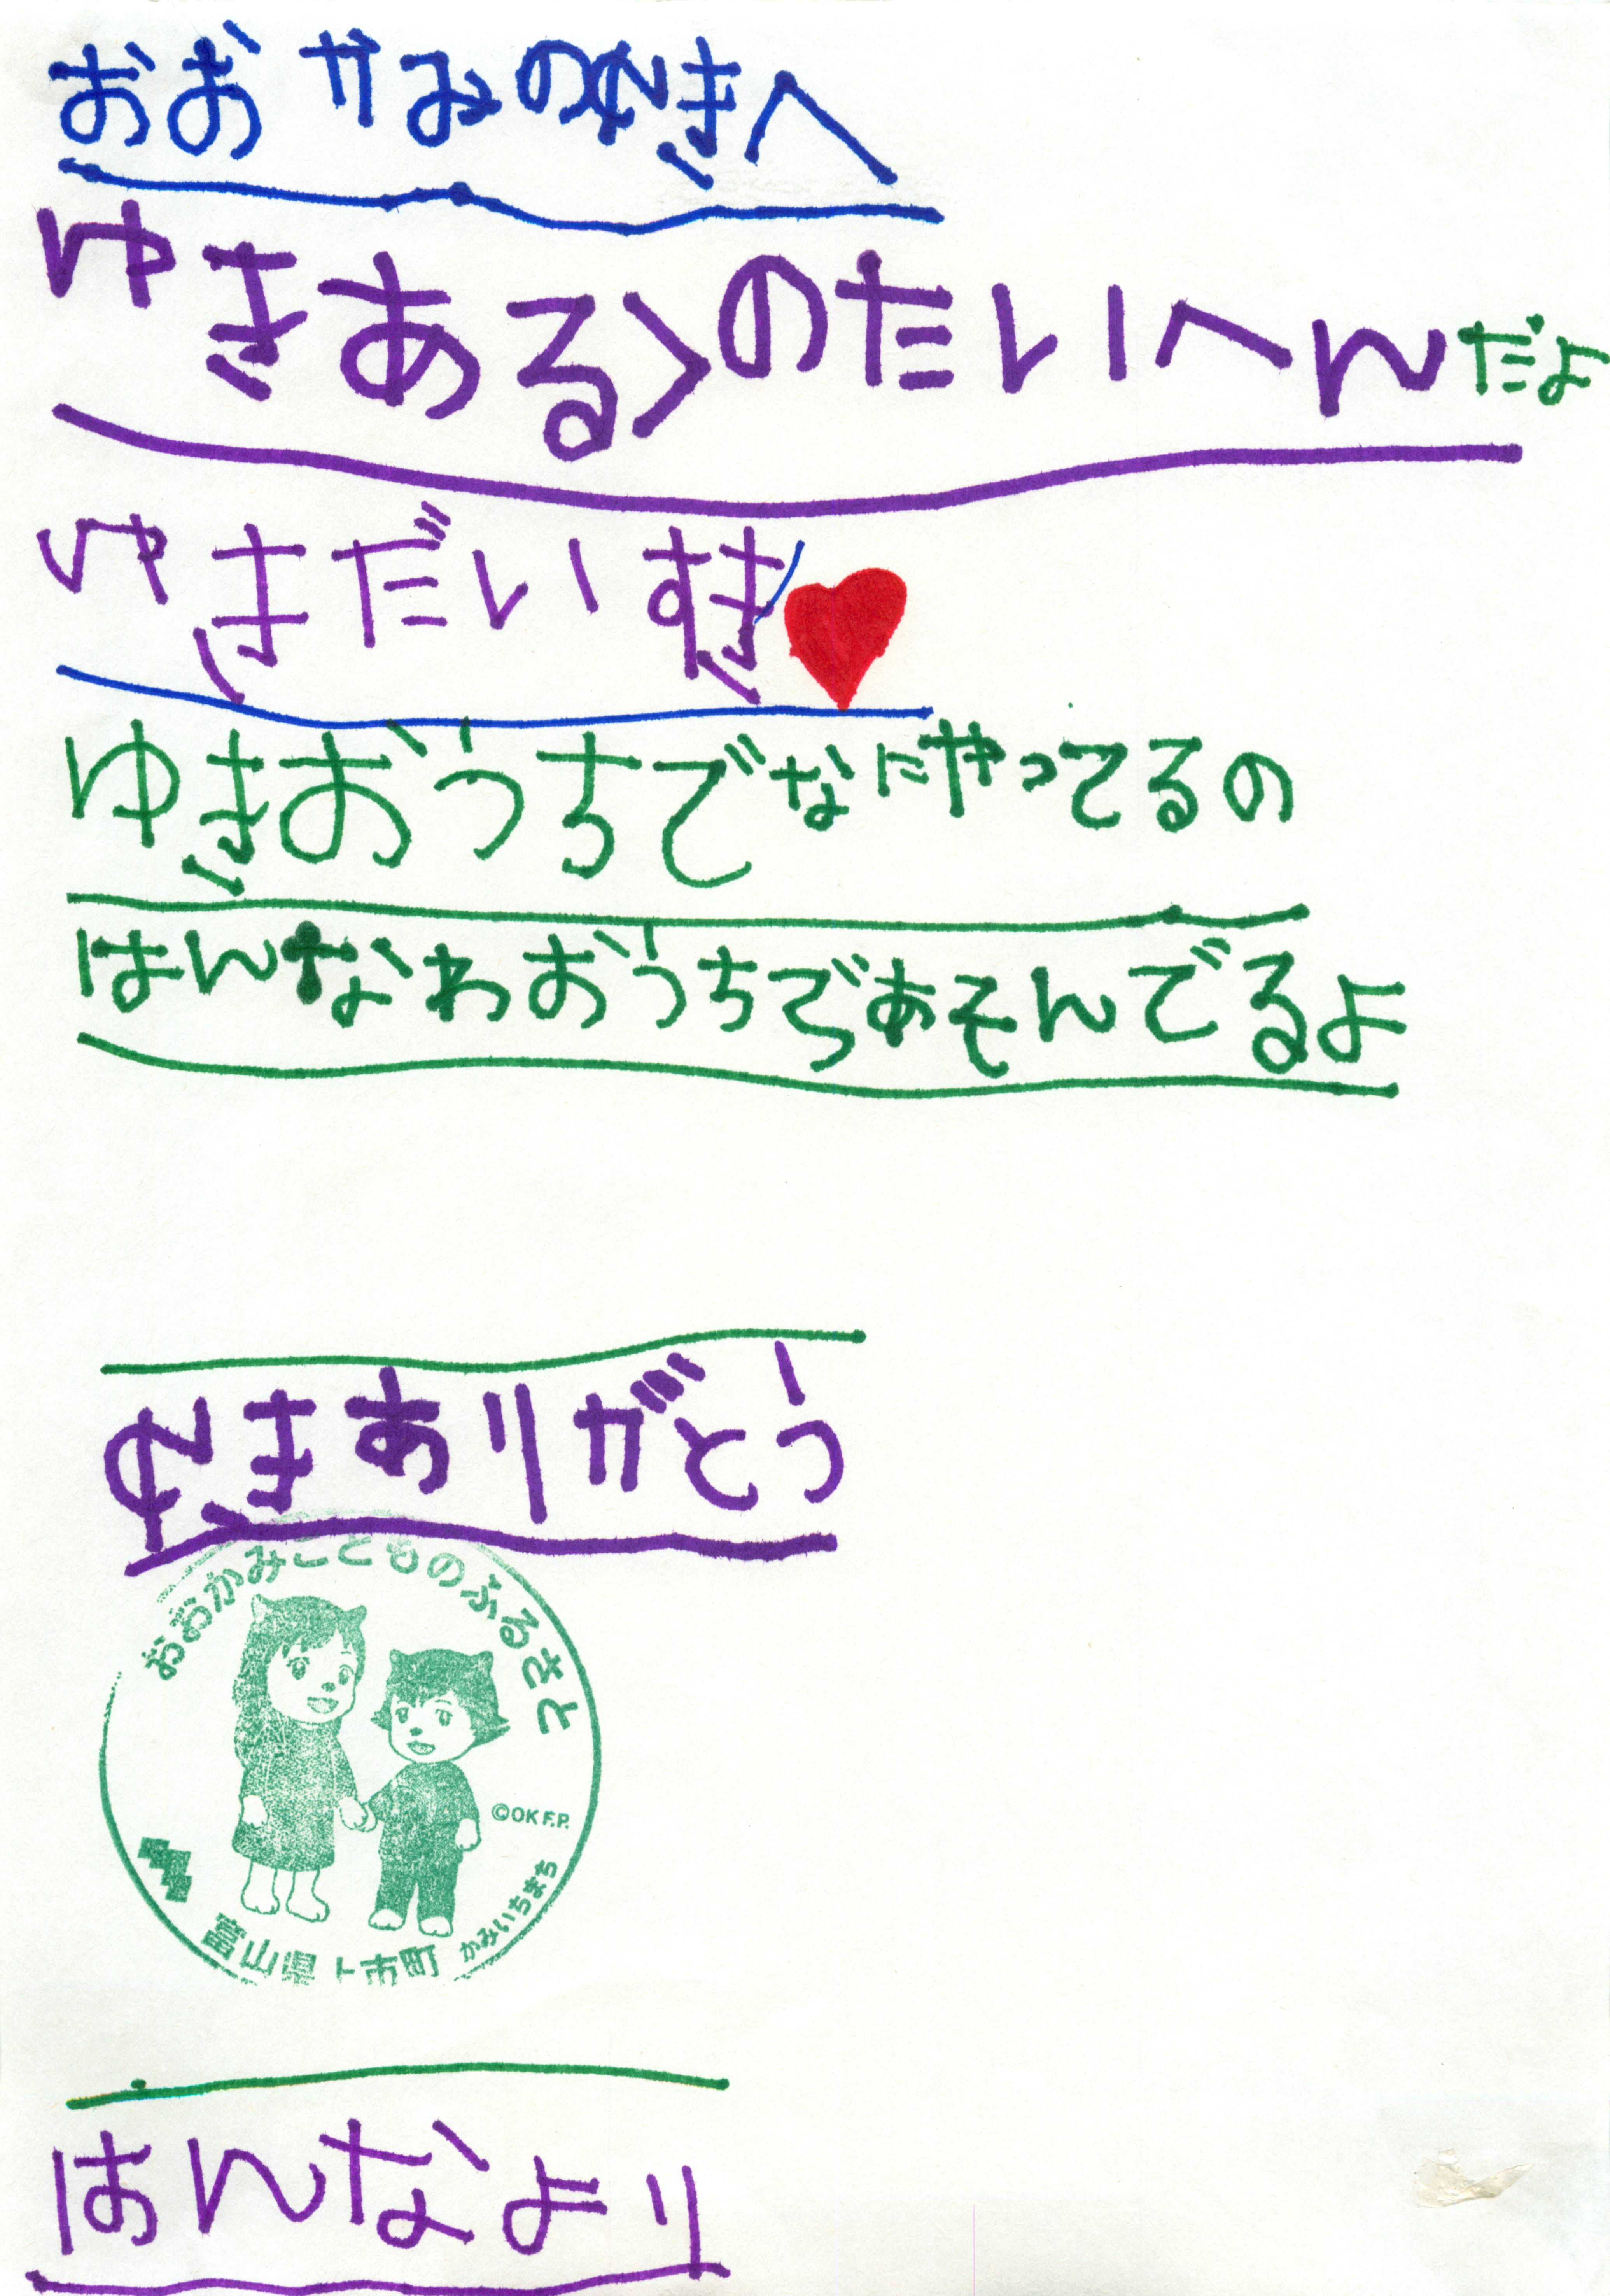 おおかみのゆきへ
ゆきあるくのたいへんだよ
ゆきだいすき
ゆきおうちでなにやってるの
はんなわおうちであそんでるよ
ゆきありがとう
おおかみこどものふるさと
©OK F.P.
富山県上市町 かみいちまち
はんなより